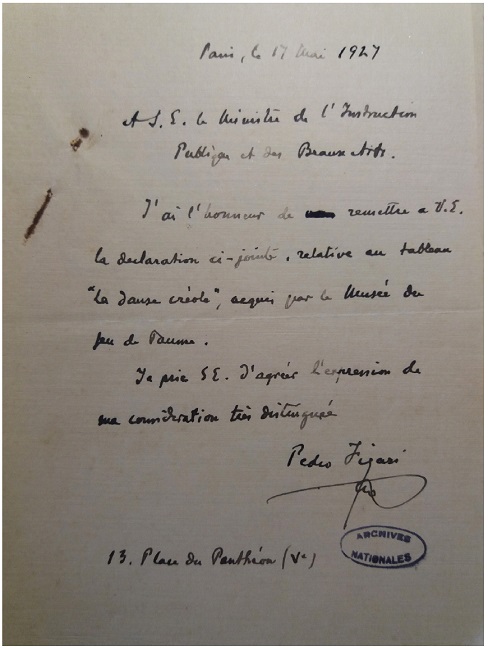 Paris, le 17 Mai 1927
A S.E. le Ministre de l'Instruction
Publique et des Beaux Arts.
J'ai l'honneur de remettre a V.E.
la declaration ci-jointe, relative au tableau
"La danse créole", acquis par le Musée du
Jeu de Paume.
Je prie S.E. d'agréer l'expression de
ma considération très distinguée
Pedro Figari
ARCHIVES
NATIONALES
13. Place du Panthéon (Ve)